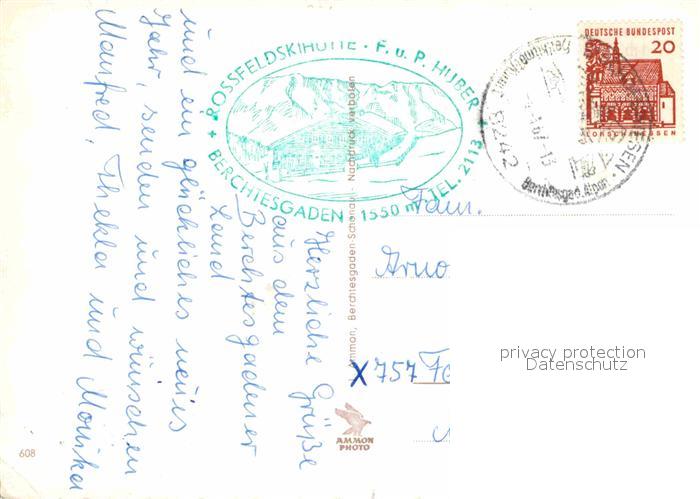 Herzliche Grüße
aus dem
Berchtesgadener
Land
und ein glückliches neues
Jahr, senden und wünschen
Manfred, Thekla und Monika
ROSSFELDSKIHÜTTE · F. u. P. HUBER
+ BERCHTESGADEN 1550 m TEL. 2113 +
Ammon, Berchtesgaden-Schönau Nachdruck verboten
DEUTSCHE BUNDESPOST
20
LORSCH/HESSEN
8242
Berchtesgad. Alpen
Fam.
Arno
X 757
privacy protection
Datenschutz
AMMON
PHOTO
608